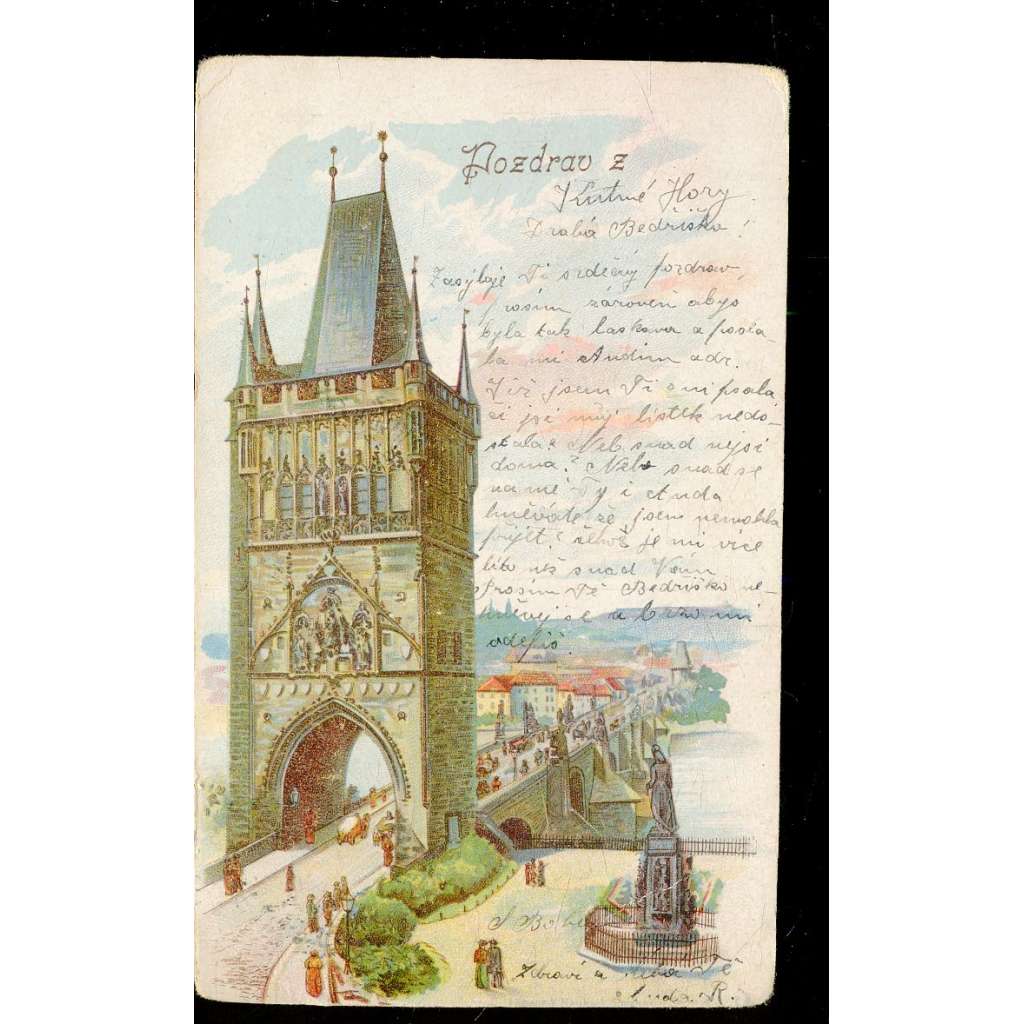 Pozdrav z
Kutné Hory.
Drahá Bedřiško!
Zasýlaje Ti srdečný pozdrav,
prosím zároveň abys
byla tak laskava a posla-
la mi Andim adr.
Již jsem Ti oni psala,
či jsi můj lístek nedo-
stala? Neb snad nejsi
doma? Nebo snad se
na mé Ty i Anda
hněváte že jsem nemohla
přijet? čehož je mi více
líto než snad Vám
Prosím Tě Bedřiško ne-
hněvej se a brzo mi
odepiš.
S Bohem
Zdraví a líbá Tě
Anda R.